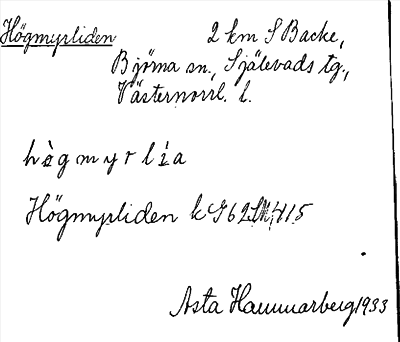 Högmyrliden 2 km S Backe,
Björna sn., Själevads tg.,
Västernorrl. l.
högmyrlia
Högmyrliden k 62 415
Asta Hammarberg 1933